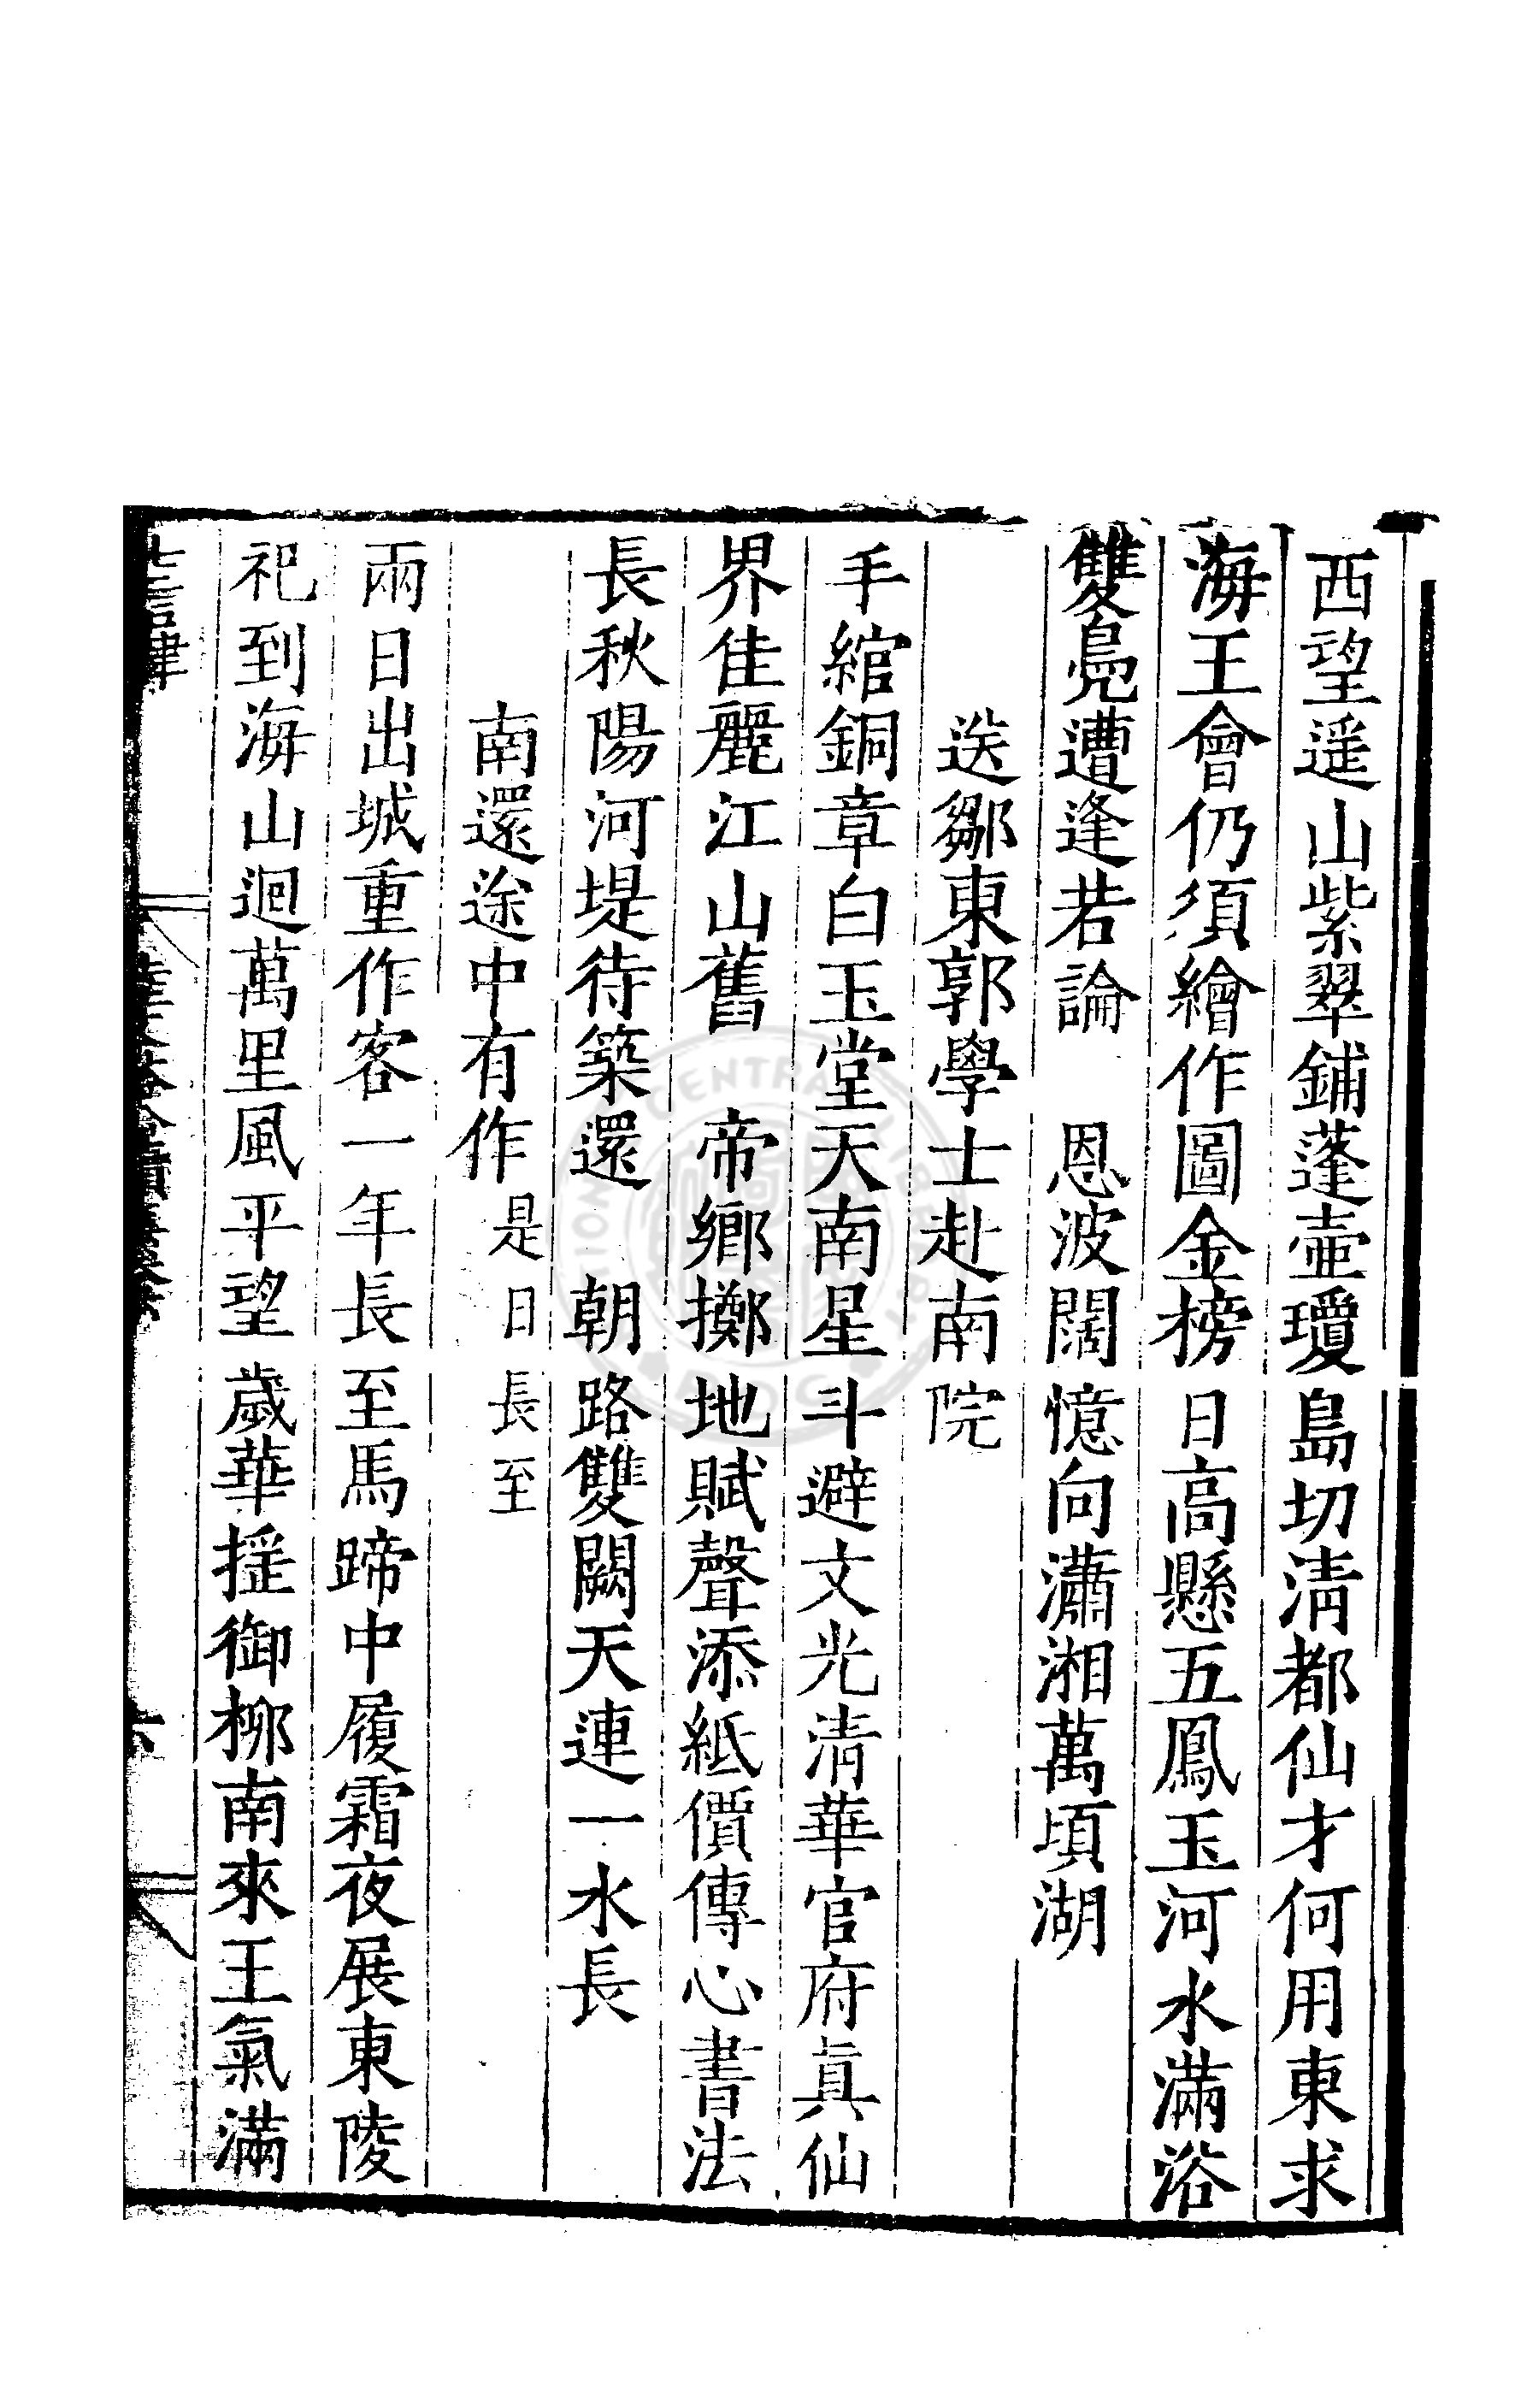 西望遥山紫翠鋪蓬壷瓊島切淸都仙才何用東求
海王會仍須繪作圖金榜日高懸五鳳玉河水滿浴
雙鳧遭逢若論　恩波闊憶向瀟湘萬頃湖
送鄒東郭學士赴南院
手綰銅章白玉堂天南星斗避文光清華官府眞仙
界佳麗江山舊　帝鄉擲地賦聲添紙價傳心書法
長秋陽河堤待築還　朝路雙闕天連一水長
南還途中有作是日長至
兩日出城重作客一年長至馬蹄中履霜夜展東陵
祀到海山迴萬里風平望歲華搖御柳南來王氣滿
七言律
六